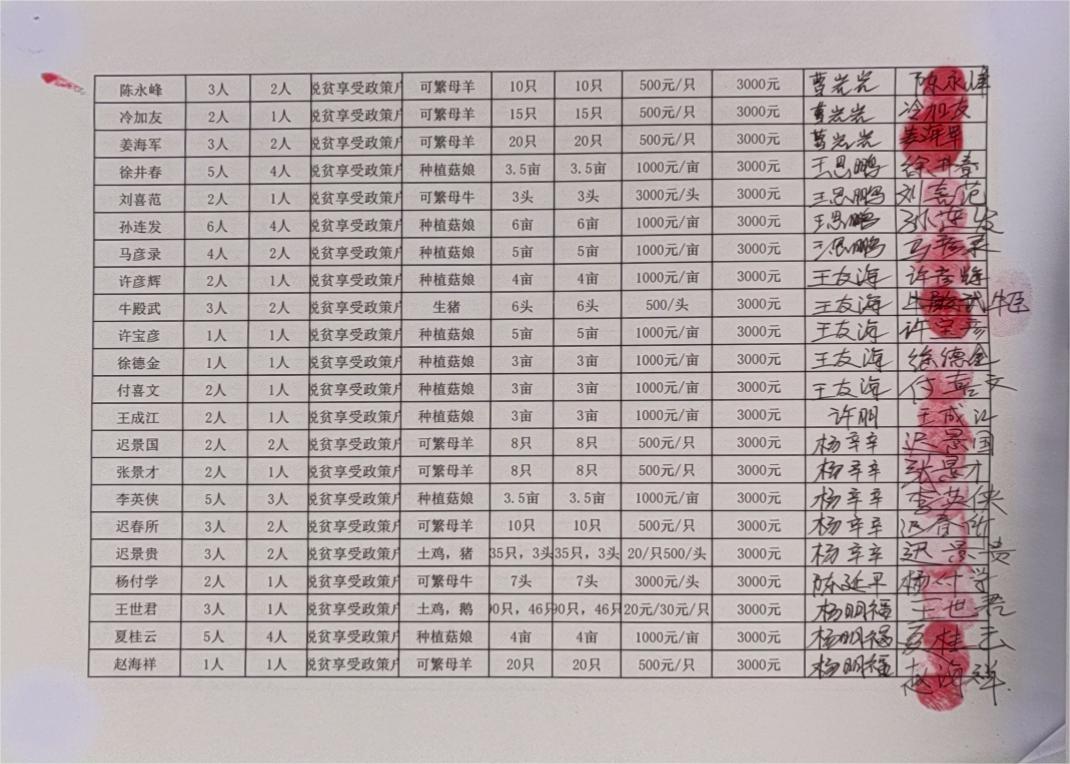 陈永峰 3人 2人 脱贫享受政策户 可繁母羊 10只 10只 500元/只 3000元 曹岩岩 陈永峰
冷加友 2人 1人 脱贫享受政策户 可繁母羊 15只 15只 500元/只 3000元 曹岩岩 冷加友
姜海军 3人 2人 脱贫享受政策户 可繁母羊 20只 20只 500元/只 3000元 曹岩岩 姜海军
徐井春 5人 4人 脱贫享受政策户 种植菇娘 3.5亩 3.5亩 1000元/亩 3000元 王思鹏 徐井春
刘喜范 2人 1人 脱贫享受政策户 可繁母牛 3头 3头 3000元/头 3000元 王思鹏 刘喜范
孙连发 6人 4人 脱贫享受政策户 种植菇娘 6亩 6亩 1000元/亩 3000元 王思鹏 孙连发
马彦录 4人 2人 脱贫享受政策户 种植菇娘 5亩 5亩 1000元/亩 3000元 王思鹏 马彦录
许彦辉 2人 1人 脱贫享受政策户 种植菇娘 4亩 4亩 1000元/亩 3000元 王友海 许彦辉
牛殿武 3人 2人 脱贫享受政策户 生猪 6头 6头 500/头 3000元 王友海 牛殿武
许宝彦 1人 1人 脱贫享受政策户 种植菇娘 5亩 5亩 1000元/亩 3000元 王友海 许宝彦
徐德金 1人 1人 脱贫享受政策户 种植菇娘 3亩 3亩 1000元/亩 3000元 王友海 徐德金
付喜文 2人 1人 脱贫享受政策户 种植菇娘 3亩 3亩 1000元/亩 3000元 王友海 付喜文
王成江 2人 1人 脱贫享受政策户 种植菇娘 3亩 3亩 1000元/亩 3000元 许明 王成江
迟景国 2人 2人 脱贫享受政策户 可繁母羊 8只 8只 500元/只 3000元 杨辛辛 迟景国
张景才 2人 1人 脱贫享受政策户 可繁母羊 8只 8只 500元/只 3000元 杨辛辛 张景才
李英侠 5人 3人 脱贫享受政策户 种植菇娘 3.5亩 3.5亩 1000元/亩 3000元 杨辛辛 李英侠
迟春所 3人 2人 脱贫享受政策户 可繁母羊 10只 10只 500元/只 3000元 杨辛辛 迟春所
迟景贵 3人 2人 脱贫享受政策户 土鸡，猪 35只，3头 35只，3头 20/只500/头 3000元 杨辛辛 迟景贵
杨付学 2人 1人 脱贫享受政策户 可繁母牛 7头 7头 3000元/头 3000元 陈延平 杨付学
王世君 3人 1人 脱贫享受政策户 土鸡，鹅 0只，46只 0只，46只 20元/30元/只 3000元 杨明福 王世君
夏桂云 5人 4人 脱贫享受政策户 种植菇娘 4亩 4亩 1000元/亩 3000元 杨明福 夏桂云
赵海祥 1人 1人 脱贫享受政策户 可繁母羊 20只 20只 500元/只 3000元 杨明福 赵海祥